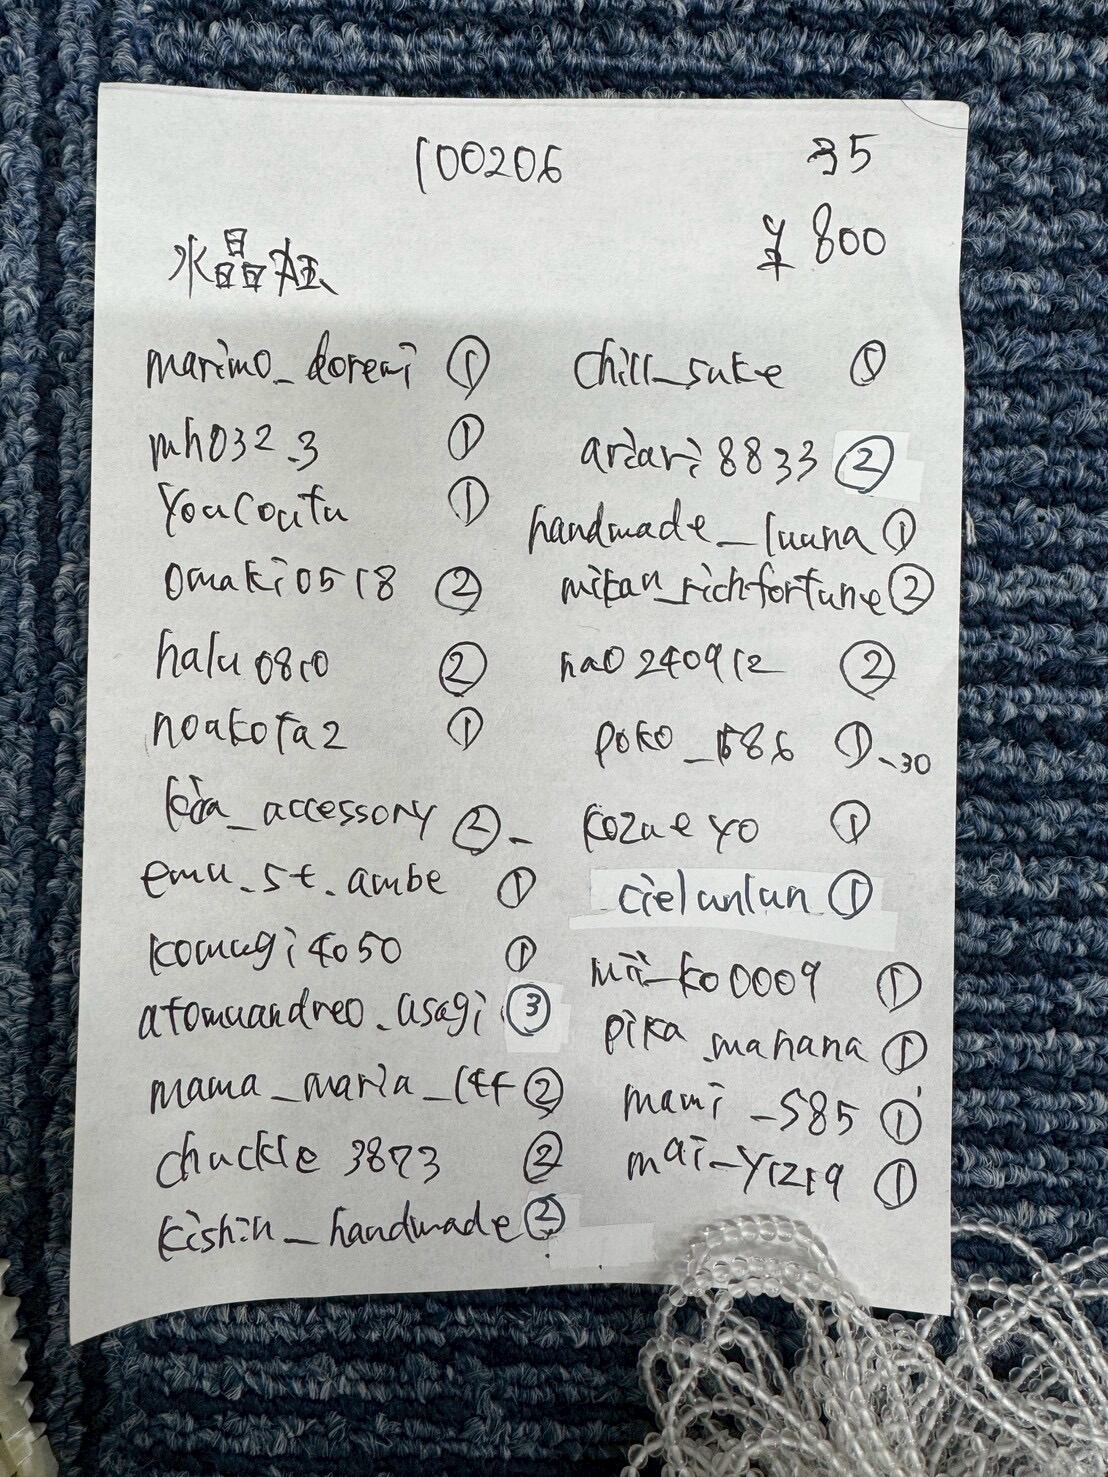 100206
35
¥800
水晶
marimo_doremi ①
mh032_3 ①
youcoutu ①
omaki0518 ②
halu0810 ②
noakota2 ①
kia_accessory ②
emu_st.ambe ①
komugi4050 ①
atomuandreo.usagi ③
mama_maria_ ②
chuckle3873 ②
kishin_handmade ②
chill_suke ①
ariari8833 ②
handmade_luuna ①
mikan_richfortune ②
nao240912 ②
poko_1586 ①-30
kozueyo ①
cielunlun ①
mii_ko0009 ①
pika_manana ①
mami_585 ①
mai_y1219 ①